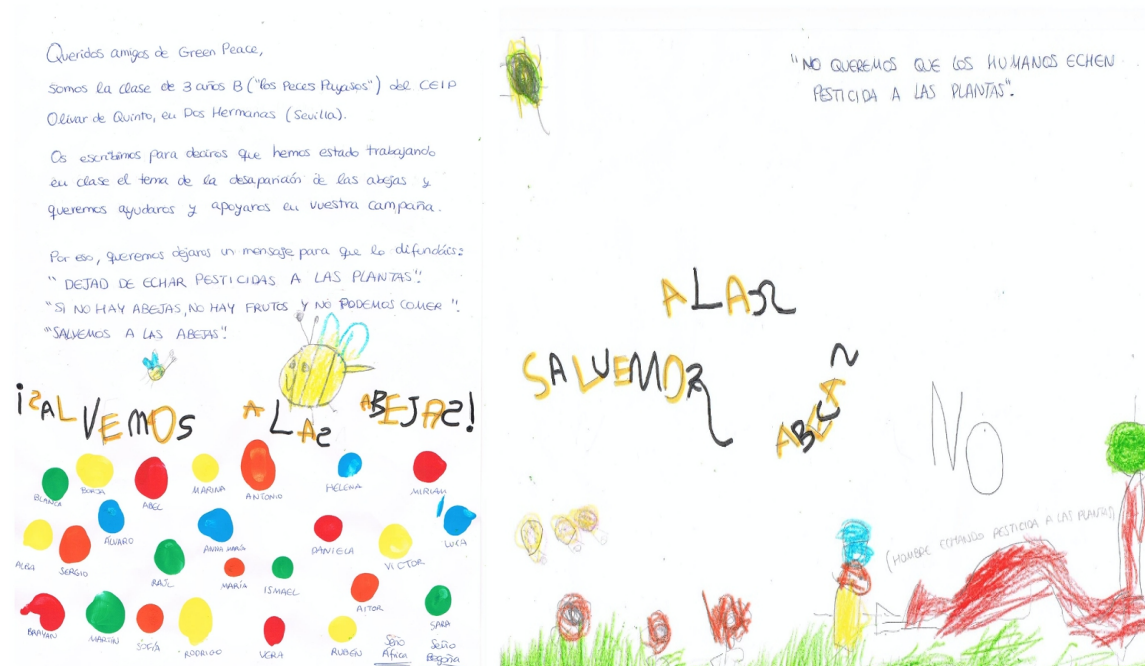 Queridos amigos de Green Peace,
somos la clase de 3 años B ("los Peces Payasos") del CEIP
Olivar de Quinto, en Dos Hermanas (Sevilla).
Os escribimos para deciros que hemos estado trabajando
en clase el tema de la desaparición de las abejas y
queremos ayudaros y apoyaros en vuestra campaña.
Por eso, queremos dejaros un mensaje para que lo difundáis:
"DEJAD DE ECHAR PESTICIDAS A LAS PLANTAS".
"SI NO HAY ABEJAS, NO HAY FRUTOS Y NO PODEMOS COMER".
"SALVEMOS A LAS ABEJAS".
¡SALVEMOS A LAS ABEJAS!
BLANCA BORJA ABEL MARINA ANTONIO HELENA MIRIAM
ALBA SERGIO ÁLVARO RAÚL ANNA MARÍA MARÍA ISMAEL DANIELA VICTOR LUCA
BRAYAN MARTÍN SOFÍA RODRIGO VERA RUBEN AITOR SARA
Seño África Seño Begoña
"NO QUEREMOS QUE LOS HUMANOS ECHEN
PESTICIDA A LAS PLANTAS".
A LAS
SALVEMOS
ABEJAS
NO
(HOMBRE ECHANDO PESTICIDA A LAS PLANTAS)